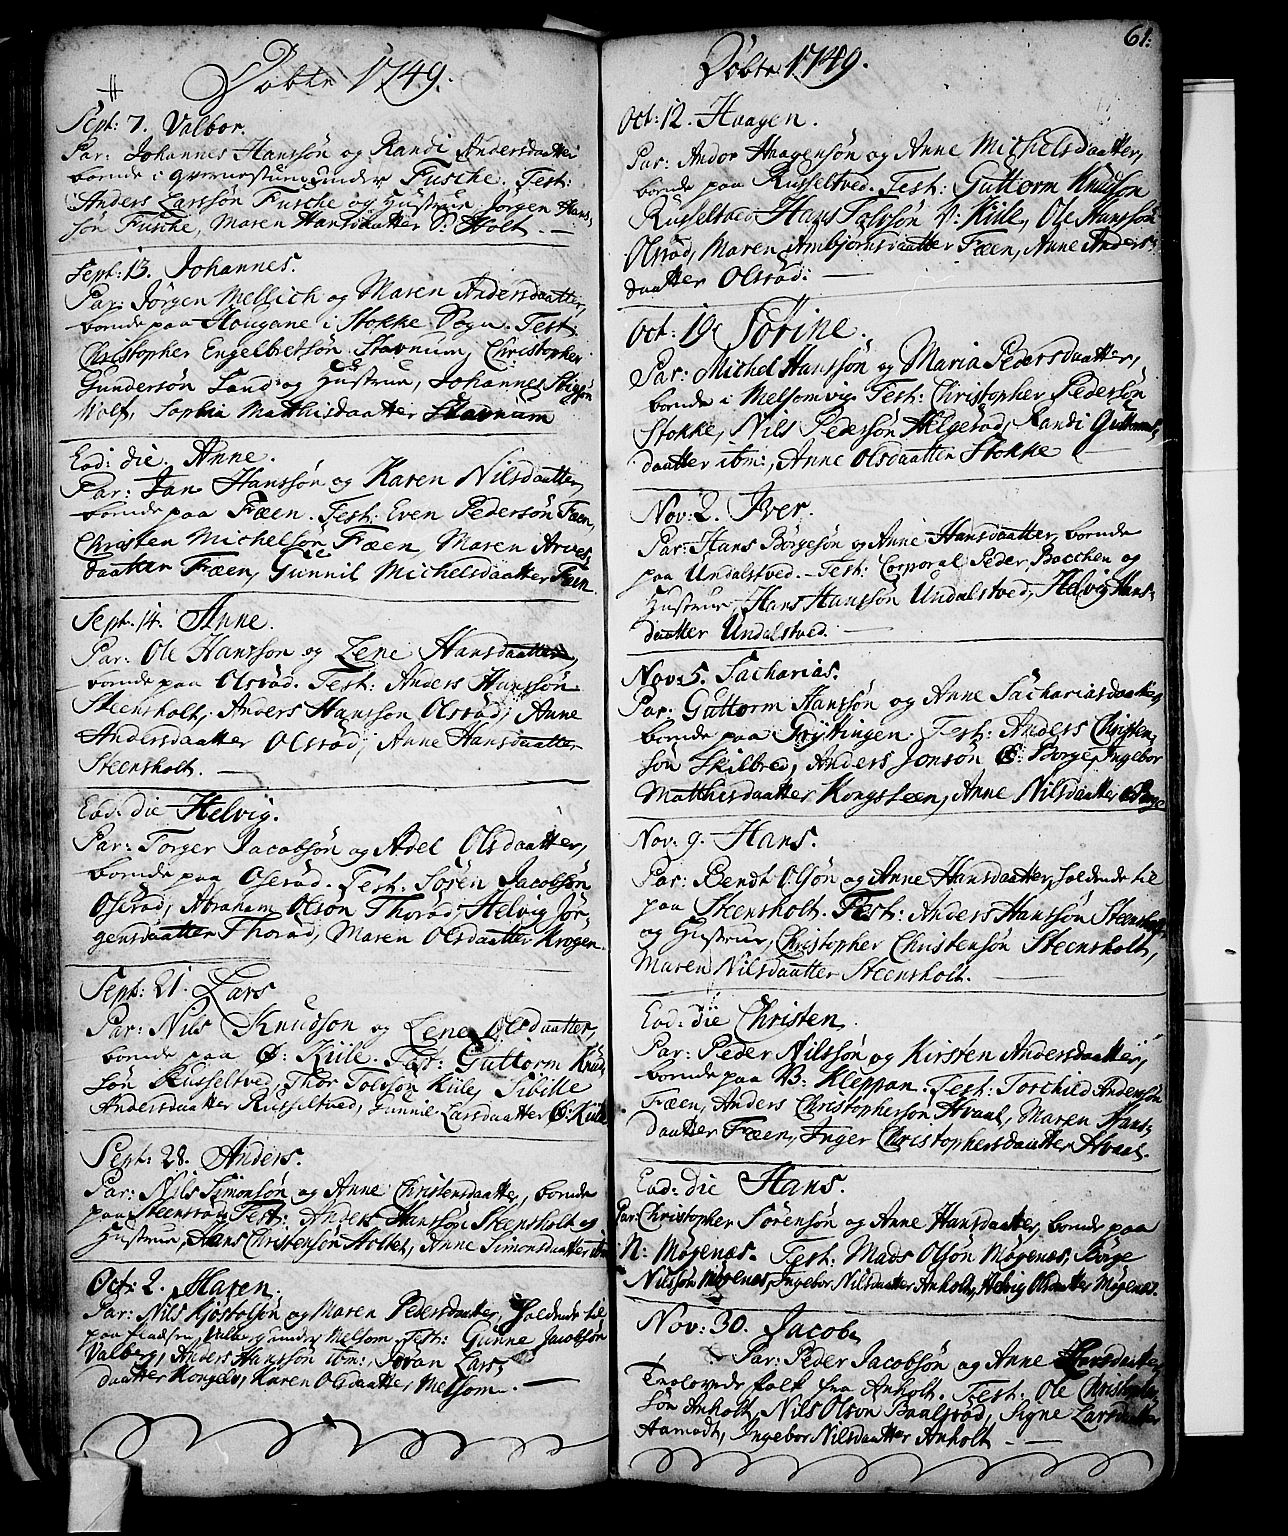 Döbte 1749.
Sept: 7. Valbor.
Par: Johannes Hanssön og Randi Andersdaatter
boende i under Fusche. Test:
Anders Larssön Fusche og Hustrue. Jörgen Hans,
sön Fusche, Maren Hansdaatter S: Holt.
Sept: 13. Johannes.
Par: Jörgen Mellich og Maren Andersdaatter,
boende paa Hougane i Stokke Sogn. Test:
Christopher Engelbretsön Stavnum, Christopher
Gundersön Land og Hustrue, Johannes
Wolf, Sophia Matthisdaatter Stavnum
Eod: die. Anne.
Par: Jan Hanssön og Karen Nilsdaatter,
boende paa Fæen. Test: Even Pedersön Fæen,
Christen Michelsön Fæen, Maren Arves,
daatter Fæen, Gunnil Michelsdaatter Fæen
Sept. 14. Anne.
Par: Ole Hanssön og Lene Hansdaatter,
boende paa Olsröd. Test: Anders Hanssön
Steensholt, Anders Hansson Olsröd, Anne
Andersdaatter Olsröd, Anne Hansdaatter
Steensholt.
Eod: die Helvig.
Par: Torger Jacobsön og Adel Olsdaatter,
boende paa Oseröd. Test. Sören Jacobsön
Oseröd, Abraham Olsön Thoröd, Helvig Jör,
gensdaatter Thoröd, Maren Olsdaatter Krogen.
Sept: 21. Lars
Par: Nils Knudsön og Lene Olsdaatter,
boende paa Ø: Kiile. Test: Guttorm Knud,
sön Russeltved, Thor Tolvson Kiile, Sibille
Andersdaatter Russeltved, Gunnil Larsdaatter Ø: Kiile
Sept: 28. Anders.
Par: Nils Simonsön og Anne Christensdaatter, boende
paa Steensröd, Test: Anders Hanssön Steensholt og
Hustrue, Hans Christensön Holtet, Anne Simonsdaatter ibm
Oct: 2. Maren.
Par: Nils Kjöstolsön og Maren Pedersdaatter, Holdende til
paa pladsen under Melsom. Test: Gunne Jacobsön
Valberg, Anders Hanssön ibm:, Joran Lars,
daatter Kongslv, Karen Olsdaatter Melsom.
61:
Döbte 1749.
Oct: 12. Haagen.
Par: Andor Haagensön og Anne Michelsdaatter,
boende paa Russeltved. Test: Guttorm Knudsön
Russeltved Hans Tolssön V: Kiile, Ole Hanssön
Olsröd, Maren Ambjörnsdaatter Fæen, Anne Anders,
daatter Olsröd:
Oct: 19 Sörine.
Par: Michel Hanssön og Maria Pedersdaatter,
boende i Melsomvig. Test: Christopher Pedersön
Stokke, Nils Pedersön Helgeröd, Randi Guttorms,
daatter ibm:, Anne Olsdaatter Stokke
Nov: 2. Iver.
Par: Hans Börgesön og Anne Hansdaatter, boende
paa Undalstved. Test: Corporal Peder Bacchen og
Hustrue, Hans Hanssön Undalstved, Helvig Hans,
daatter Undalstved.
Nov: 5. Sacharias.
Par: Guttorm Hanssön og Anne Sachariasdaatter
boende paa Gryttingen. Test: Anders Christen,
sön Skilbred, Anders Jonsön Ø: Borge, Ingebor
Matthisdaatter Kongsteen, Anne Nilsdaatter Ø: Borge
Nov: 9. Hans.
Par: Bendt Olsön og Anne Hansdaatter, holdende til
paa Steensholt. Test: Anders Hanssön Steensholt
og Hustrue, Christopher Christensön Steensholt,
Maren Nilsdaatter Steensholt.
Eod: die Christen.
Par: Peder Nilssön og Kirsten Andersdaatter,
boende paa V: Kleppan. Test: Torchild Andersön
Fæen, Anders Christophersön Hvaal, Maren Hans,
daatter Fæen, Inger Christophersdaatter Hvaal.
Eod: die Hans.
Par: Christopher Sörensön og Anne Hansdaatter, boende paa
N: Mögenæs. Test: Mads Olsön Mögenæs, Börge
Nilssön Mögenæs, Ingebor Nilsdaatter Anholt, Helvig Olsdaatter Mögenæs.
Nov: 30. Jacob.
Par: Peder Jacobsön og Anne Larsdaatter
Trolovede folk fra Anholt. Test: Ole Christopher,
sön Anholt, Nils Olsön Baalsröd, Signe Larsdaatter
Aamodt, Ingebor Nilsdaatter Anholt